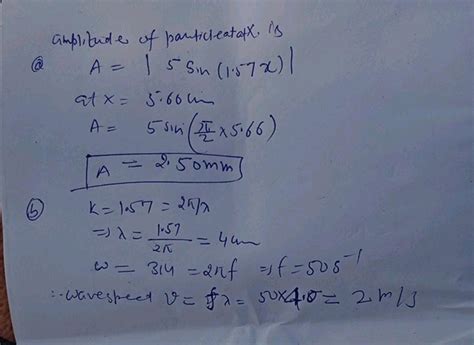 amplitude of particle at x. is
(a) A = | 5 sin (1.57x) |
at x = 5.66 cm
A = 5 sin (π/2 × 5.66)
A = 2.50mm
(b) K = 1.57 = 2π/λ
⇒ λ = 1.57/2π = 4 cm
ω = 314 = 2πf ⇒ f = 50 s⁻¹
∴ wavespeed v = fλ = 50×4.0 = 2 m/s